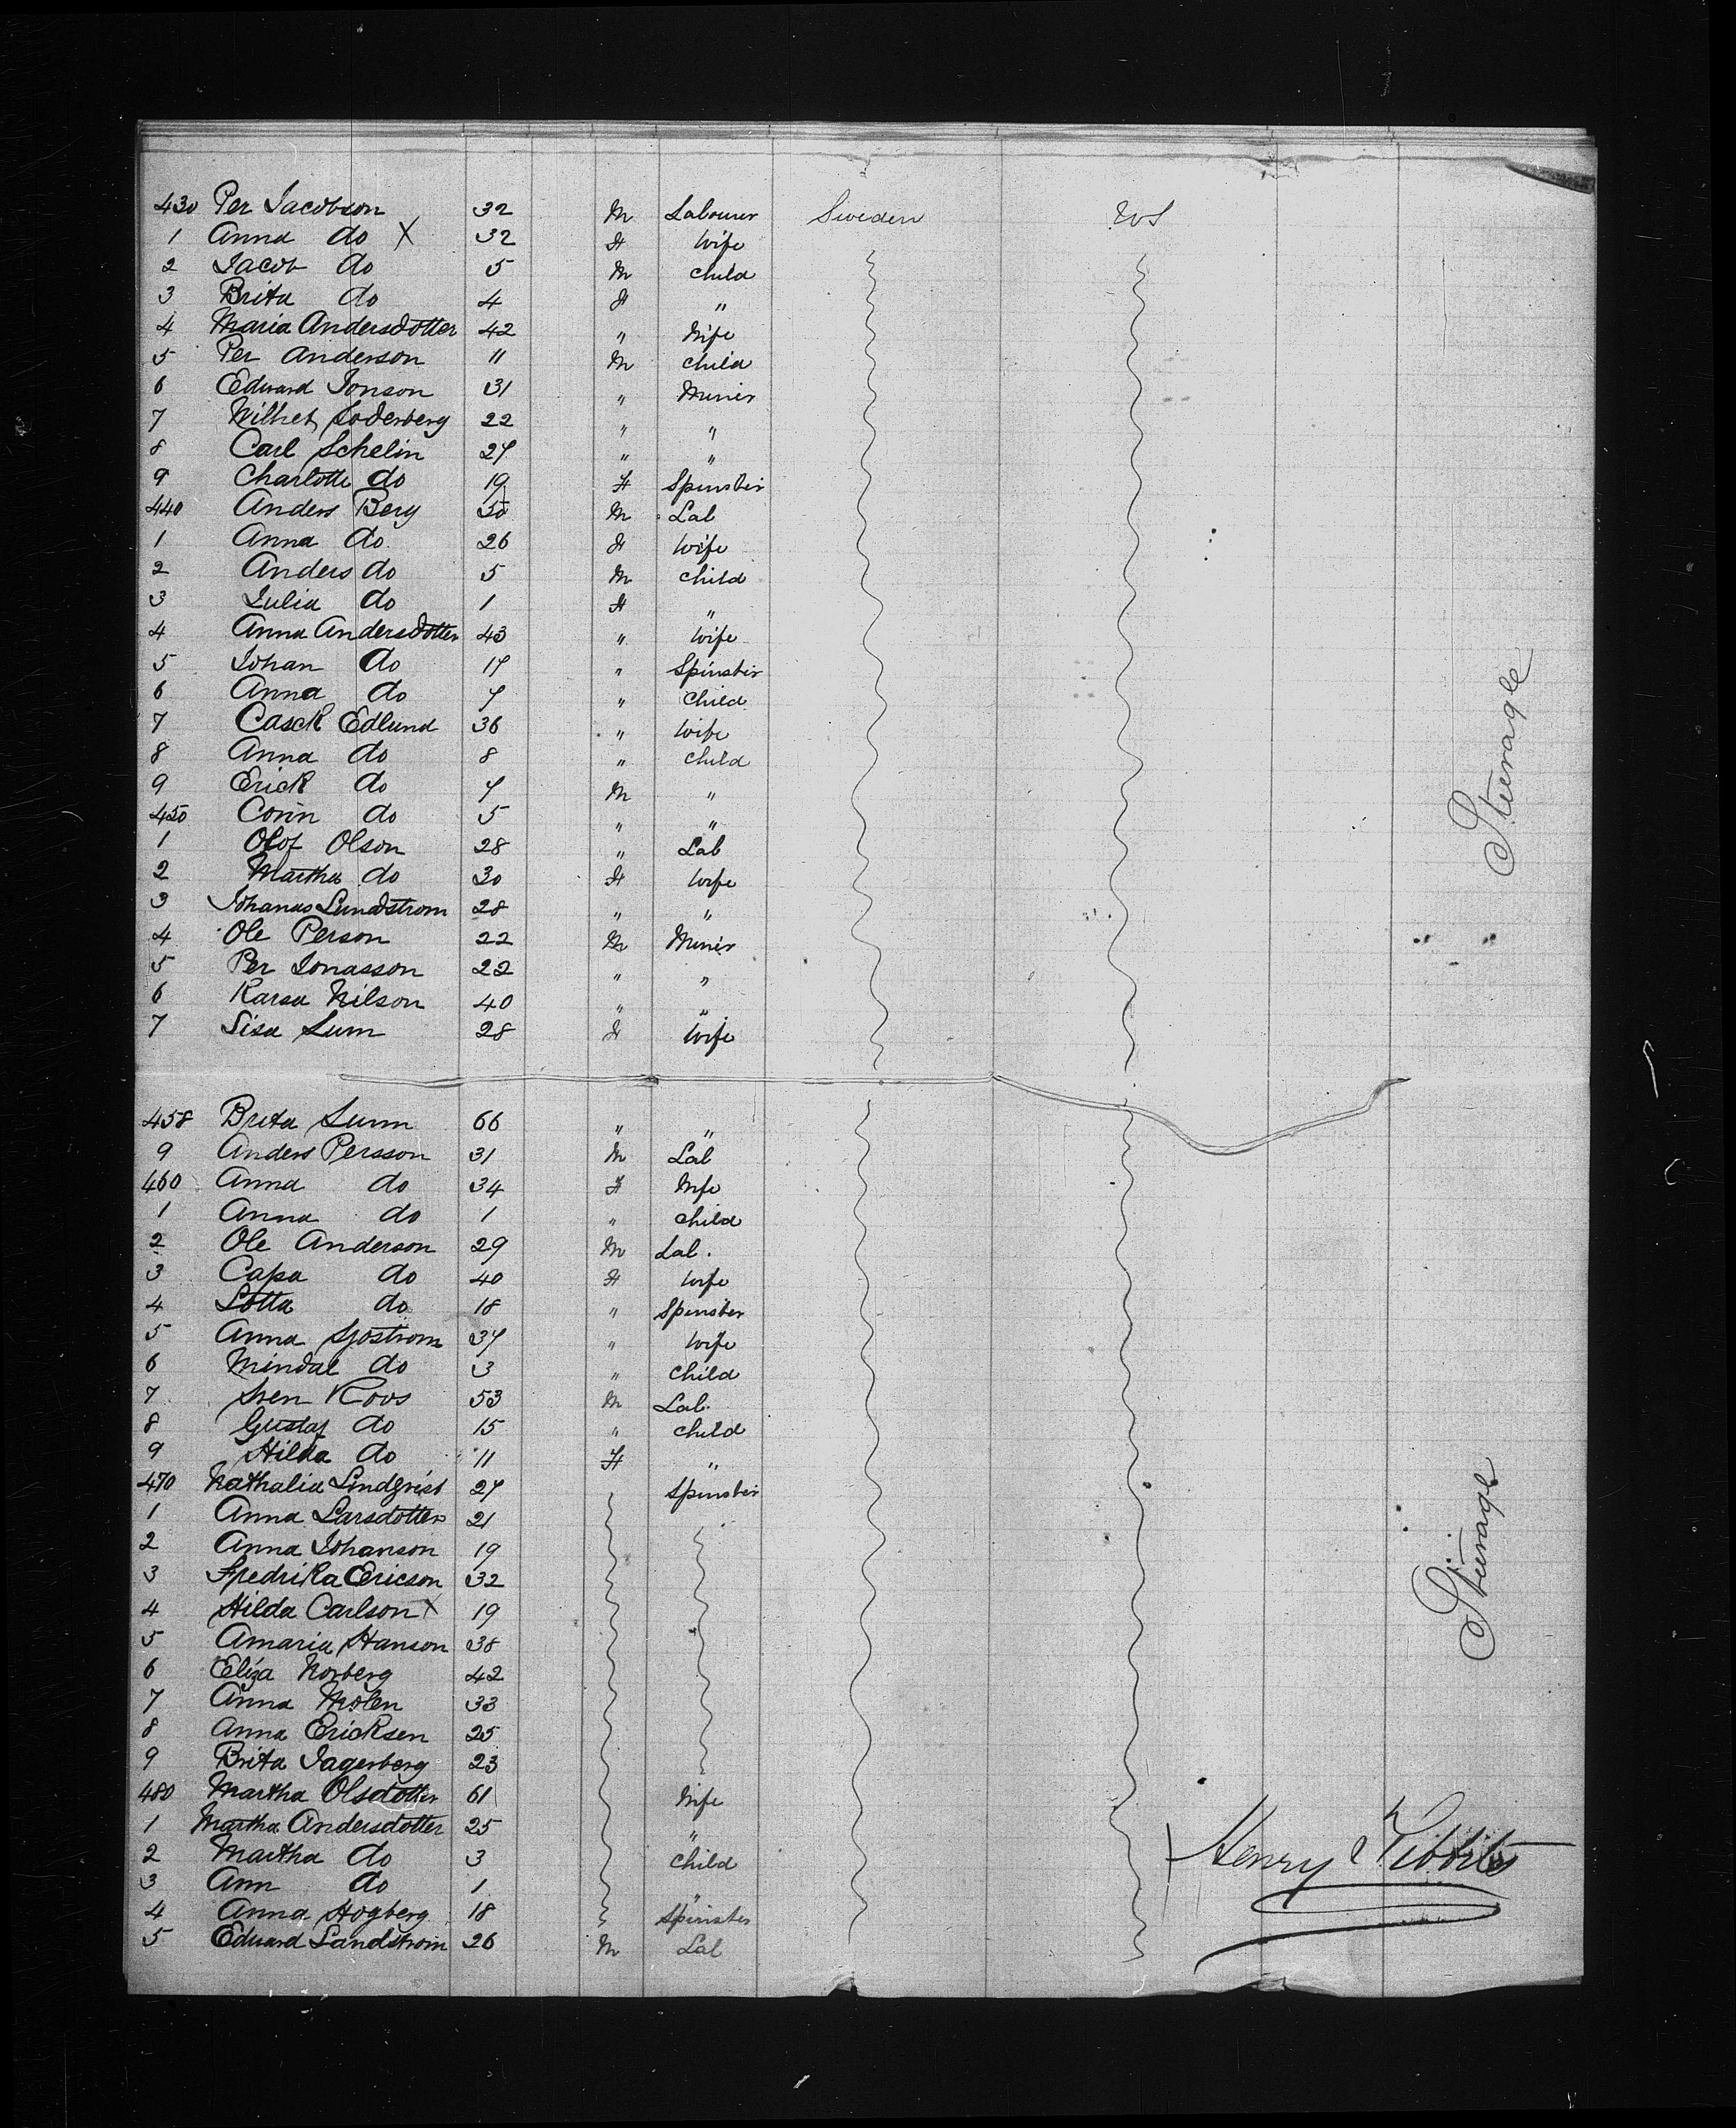 430 Per Jacobson 32 M Labourer Sweden U S
1 Anna do X 32 F Wife
2 Jacob do 5 M Child
3 Brita do 4 F "
4 Maria Andersdotter 42 " Wife
5 Per Anderson 11 M Child
6 Edward Jonson 31 " Miner
7 Soderberg 22 " "
8 Carl Schelin 27 " "
9 Charlotte do 19 F Spinster
440 Anders Berg 30 M Lab
1 Anna do 26 F Wife
2 Anders do 5 M Child
3 Julia do 1 F "
4 Anna Andersdotter 43 " Wife
5 Johan do 17 " Spinster
6 Anna do 7 " Child
7 Edlund 36 " Wife
8 Anna do 8 " Child
9 Erick do 7 M "
450 Corin do 5 " "
1 Olof Olson 28 " Lab
2 Martha do 30 F Wife
3 Johanas Lundstrom 28 " "
4 Ole Person 22 M Miner
5 Per Jonasson 22 " "
6 Karsa Nilson 40 " "
7 Lisa Sum 28 F Wife
Steerage
458 Brita Sum 66 " "
9 Anders Persson 31 M Lab
460 Anna do 34 F Wife
1 Anna do 1 " Child
2 Ole Anderson 29 M Lab.
3 Capa do 40 F Wife
4 Lotta do 18 " Spinster
5 Anna Sjostrom 37 " Wife
6 Mindal do 3 " Child
7 Sven Roos 53 M Lab.
8 Gustaf do 15 " Child
9 Hilda do 11 F "
470 Nathalia Lindqvist 27 Spinster
1 Anna Larsdotter 21
2 Anna Johanson 19
3 Fredrika Ericson 32
4 Hilda Carlson X 19
5 Amaria Hanson 38
6 Eliza Norberg 42
7 Anna Molen 33
8 Anna Ericksen 25
9 Brita Jagerberg 23
480 Martha Olsdotter 61 Wife
1 Martha Andersdotter 25 "
2 Martha do 3 Child
3 Ann do 1 "
4 Anna Hogberg 18 Spinster
5 Edward Sandstrom 26 M Lab
Steerage
Henry Tibbits